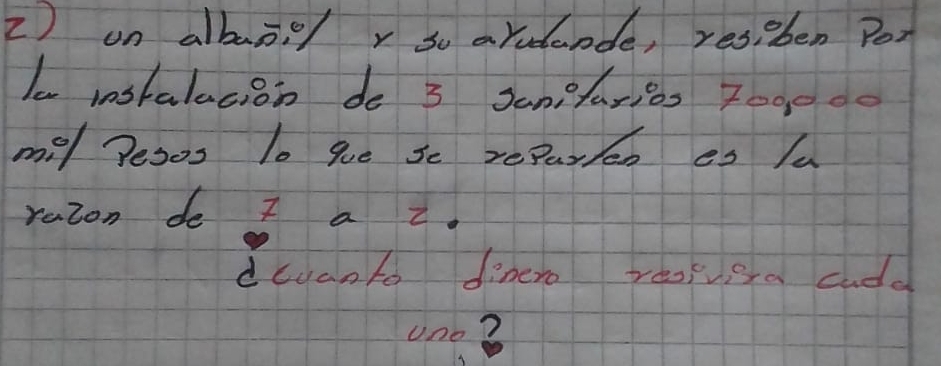 2) un albañil y su ayudande, resiben Por
la instalación de 3 sanitarios 700,000
mil Pesos lo que se reparten es la
razon de 7 a 2.
¿cuanto dinero resivira cada
uno?